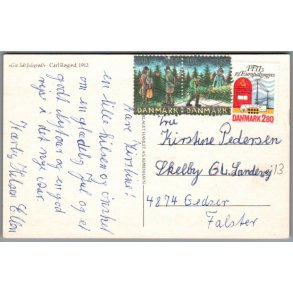 »Gå Jul fulgraf« - Carl Røgind, 1912
Kære Kirstine!
en lille hilsen og ønsket
om en glædelig Jul og et
godt nytaar og en god
rejse i det nye aar.
Kærlig Hilsen Ellen
DANMARK
DANMARK
PTT's
og Europalogens
DANMARK 2.80
Fru
Kirstine Pedersen
Skelby Gl. Landevej 13
4874 Gedser
Falster